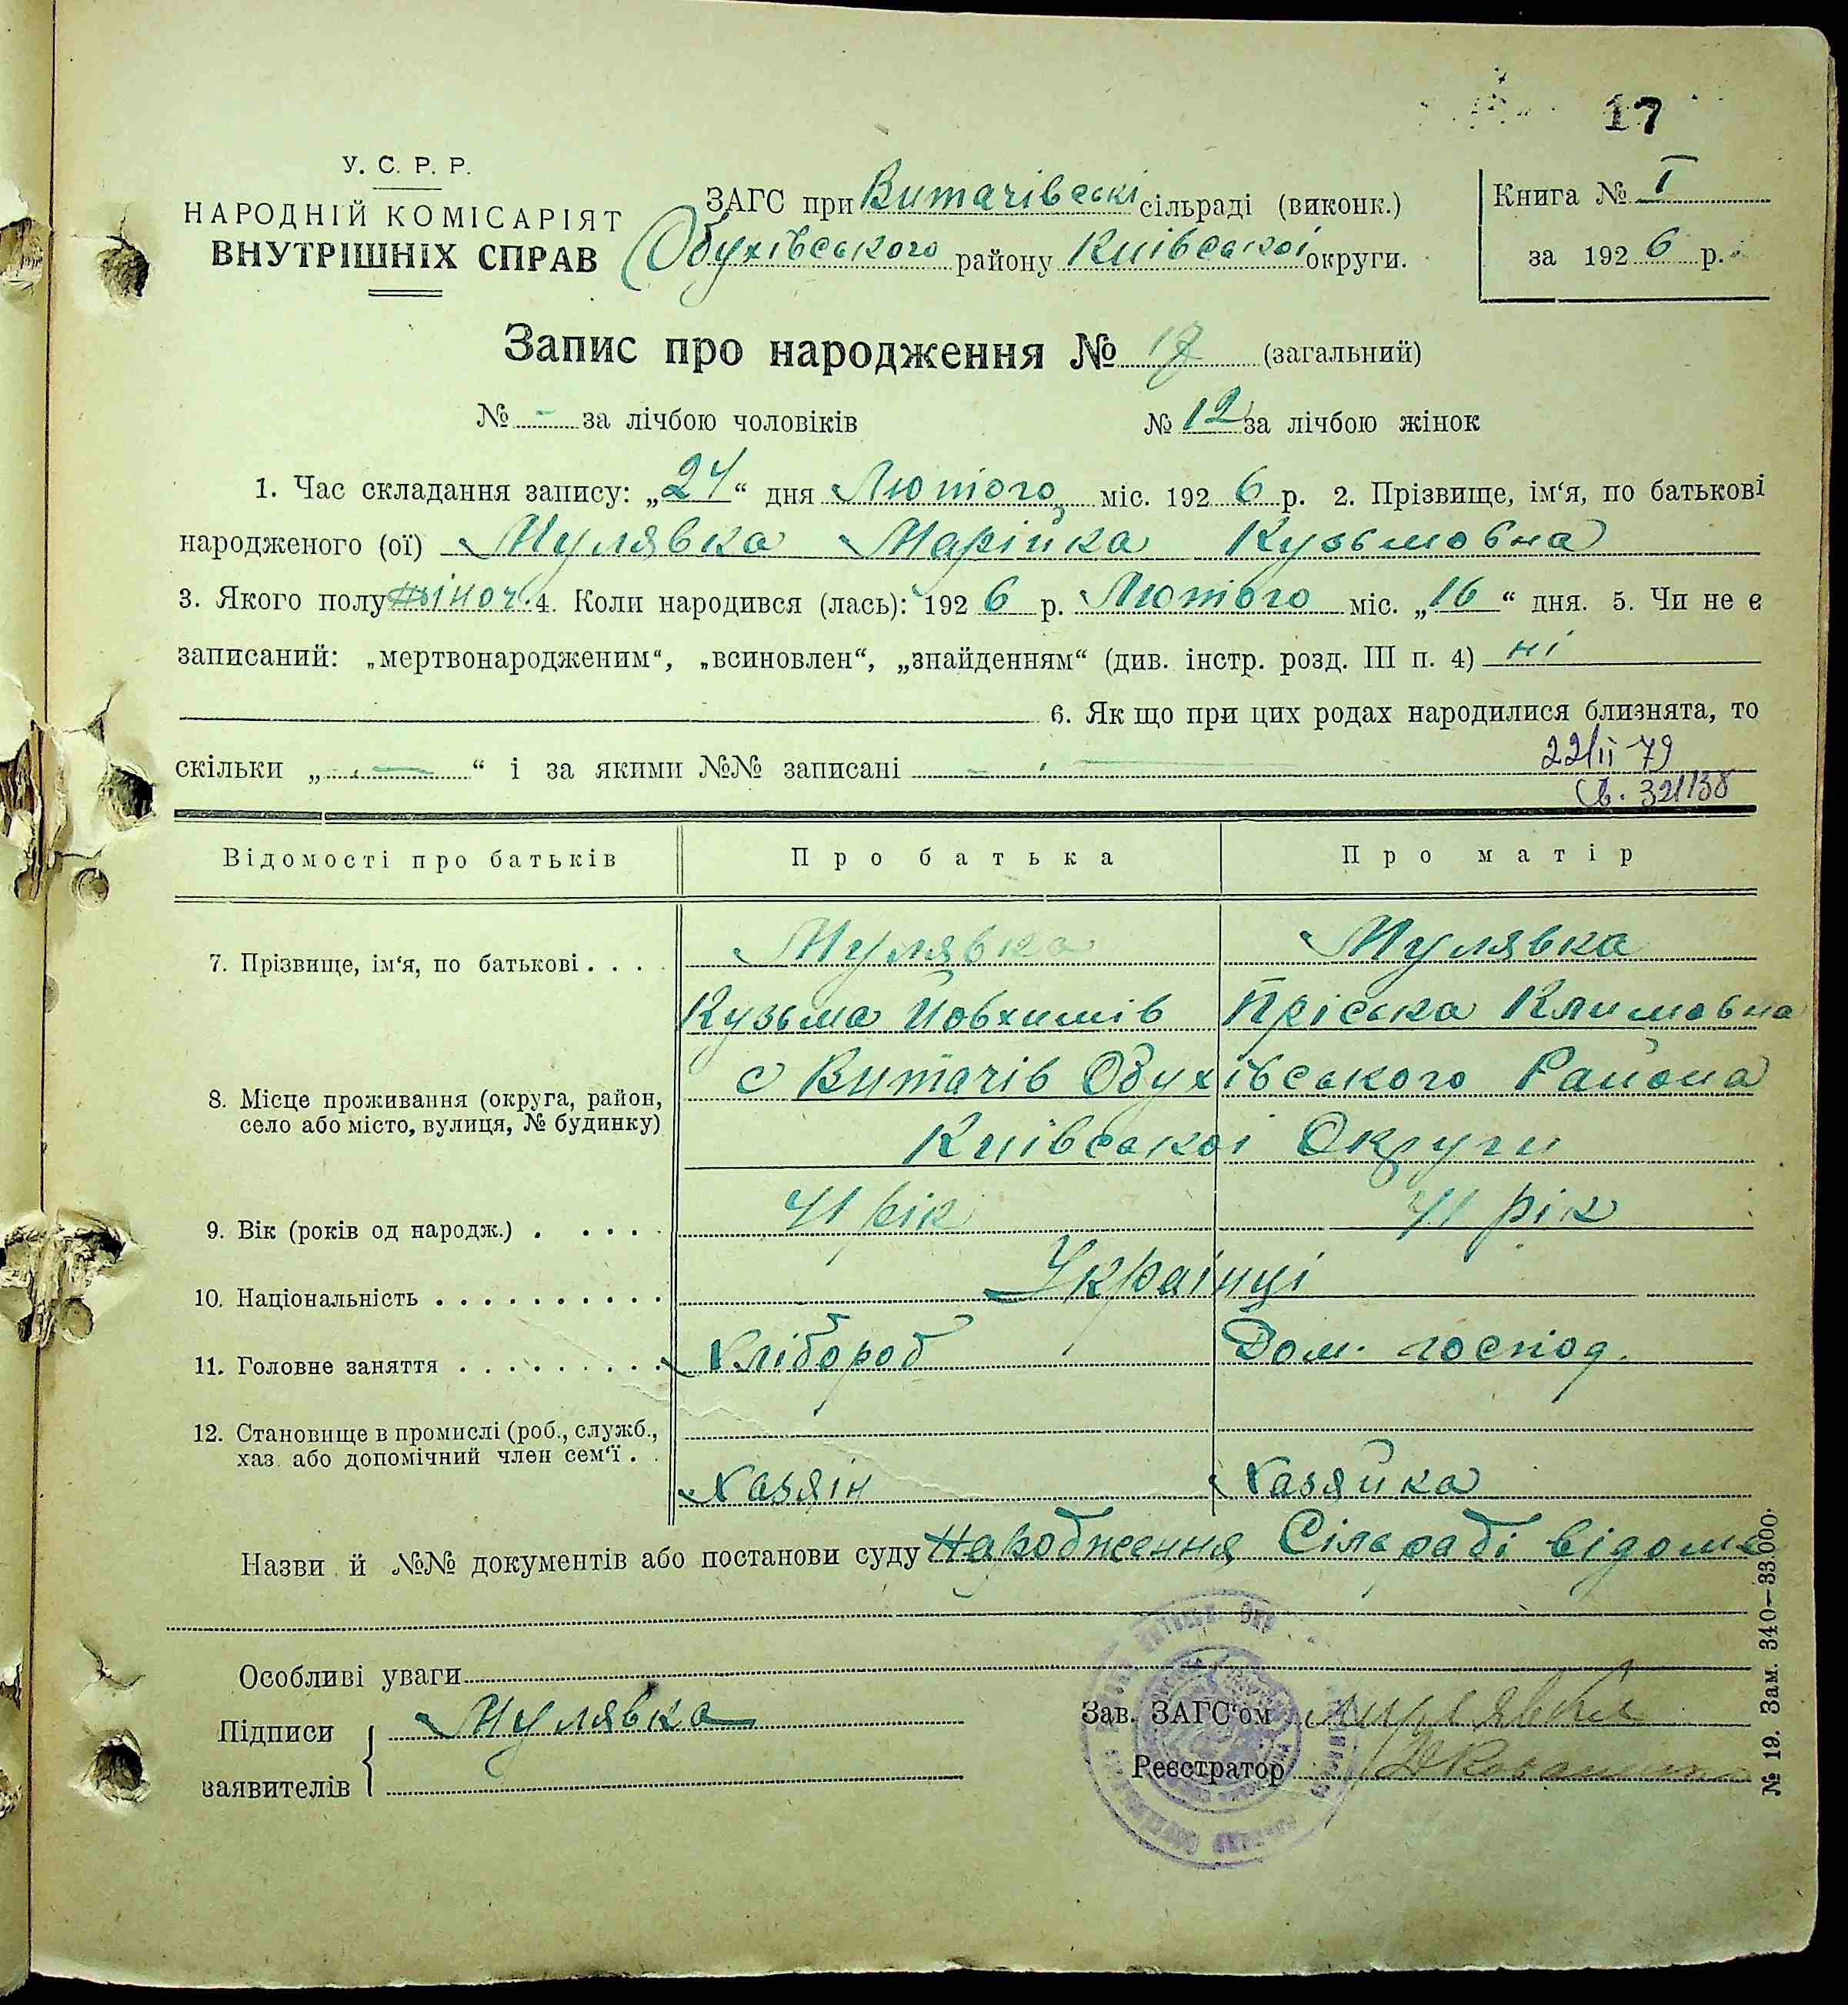 17
У. С. Р. Р.
НАРОДНІЙ КОМІСАРІЯТ
ВНУТРІШНІХ СПРАВ
ЗАГС при Витачівські сільраді (виконк.)
Обухівського району Київської округи.
Книга № I
за 1926 р.
Запис про народження № 17 (загальний)
№ - за лічбою чоловіків № 12 за лічбою жінок
1. Час складання запису: „24“ дня Лютого міс. 1926 р. 2. Прізвище, ім‘я, по батькові
народженого (ої) Мулявка Марійка Кузьмовна
3. Якого полу жіноч. 4. Коли народився (лась): 1926 р. Лютого міс. „16“ дня. 5. Чи не є
записаний: „мертвонародженим“, „всиновлен“, „знайденням“ (див. інстр. розд. III п. 4) ні
6. Як що при цих родах народилися близнята, то
скільки „ — “ і за якими №№ записані —
22/II 79
Св. 321138
Відомості про батьків Про батька Про матір
7. Прізвище, ім‘я, по батькові . . . . Мулявка Мулявка
Кузьма Йовхимів Пріська Климовна
8. Місце проживання (округа, район, село або місто, вулиця, № будинку) с Витачів Обухівського Района
Київської Округи
9. Вік (років од народж.) . . . . . 41 рік 41 рік
10. Національність . . . . . . . . . . Українці
11. Головне заняття . . . . . . . . . Хлібороб Дом. господ.
12. Становище в промислі (роб., служб.,
хаз. або допомічний член сем‘ї . . Хазяін Хазяйка
Назви й №№ документів або постанови суду Народження Сільраді відоме
Особливі уваги
Підписи
заявителів
Мулявка
Зав. ЗАГС‘ом Мулявка
Реєстратор
№ 19. Зам. 340—33.000.